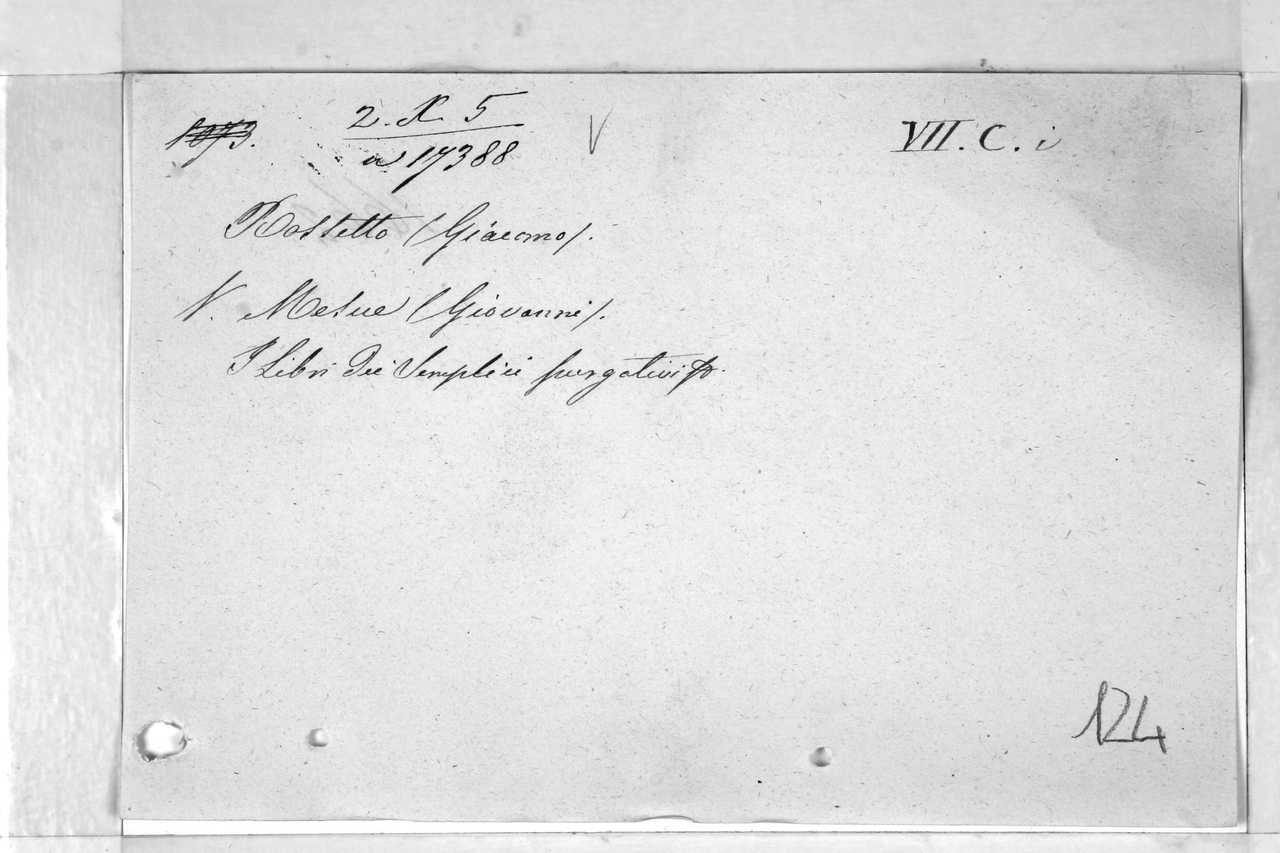 1073. 2. X. 5 V VII. C. i
a 17388
Rossetto (Giacomo).
V. Mesue (Giovanni).
I Libri dei Semplici purgativi
124